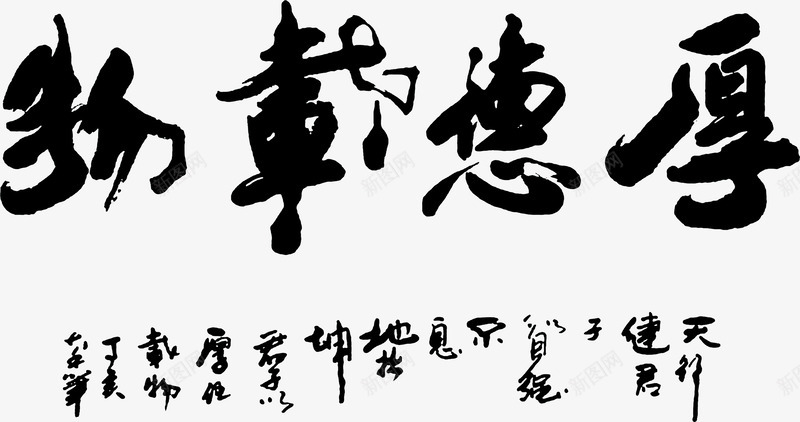 厚德載物
天行
健君
子
以自强
不
息
地势
坤
君子以
厚德
載物
丁亥
新图网